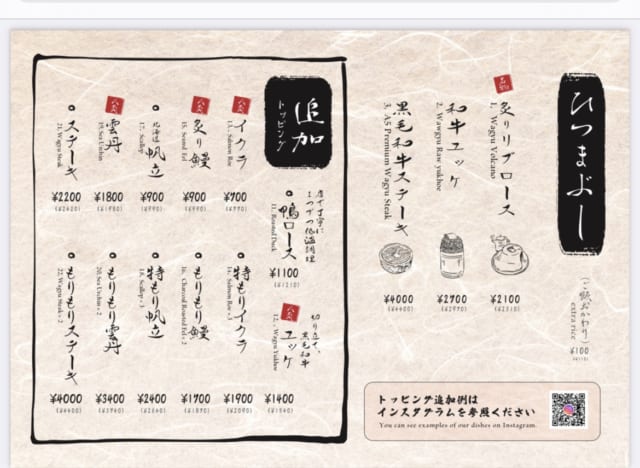 ひつまぶし
名物
炙りリブロース
1. Wagyu Volcano
¥2100
(¥2310)
和牛ユッケ
2. Wawgyu Raw yukhoe
¥2900
黒毛和牛ステーキ
3. A5 Premium Wagyu Steak
¥4000
(¥4400)
(ご飯おかわり)
extra rice
¥100
(¥110)
追加
トッピング
鴨ロース
11. Roasted Duck
¥1100
(¥1210)
切り立て、
黒毛和牛
ユッケ
12. Wagyu Yukhoe
¥1400
(¥1540)
人気
イクラ
13. Salmon Roe
¥900
(¥990)
特もりイクラ
14. Salmon Roe × 3
¥1900
(¥2090)
人気
炙り鰻
¥900
(¥990)
もりもり鰻
16. Charcoal Roasted Eel × 2
¥1700
(¥1870)
北海道
帆立
17. Scallop
¥900
(¥990)
特もり帆立
18. Scallop × 3
¥2400
(¥2640)
人気
雲丹
19. Sea Urchin
¥1800
(¥1980)
もりもり雲丹
20. Sea Urchin × 2
¥3400
(¥3740)
ステーキ
21. Wagyu Steak
¥2200
(¥2420)
もりもりステーキ
22. Wagyu Steak × 2
¥4000
(¥4400)
トッピング追加例は
インスタグラムを参照ください
You can see examples of our dishes on Instagram.